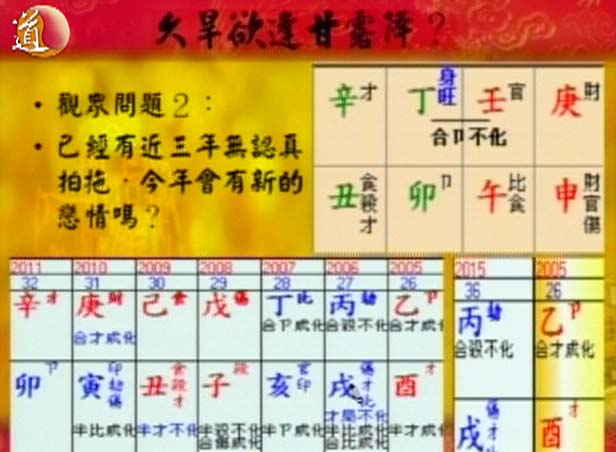 道
久旱欲逢甘露降？
• 觀眾問題2：
• 已經有近三年無認真
拍拖．今年會有新的
戀情嗎？
辛 才 丁 身旺 壬 官 庚 財
合卩不化
丑 食殺才 卯 卩 午 比食 申 財官傷
2011 2010 2009 2008 2007 2006 2005
32 31 30 29 28 27 26
辛 才 庚 財 己 食 戊 傷 丁 比 丙 劫 乙 卩
合才成化 合卩成化 合殺不化 合才成化
卯 卩 寅 印劫傷 丑 食殺才 子 殺 亥 官印 戌 傷才比 酉 才
才局不化
半比成化 半才不化 半殺不化 半卩成化 半殺不化 半才成化
合傷成化 合比成化
2015 2005
36 26
丙 劫 乙 卩
合殺不化 合才成化
戌 傷才比 酉 才